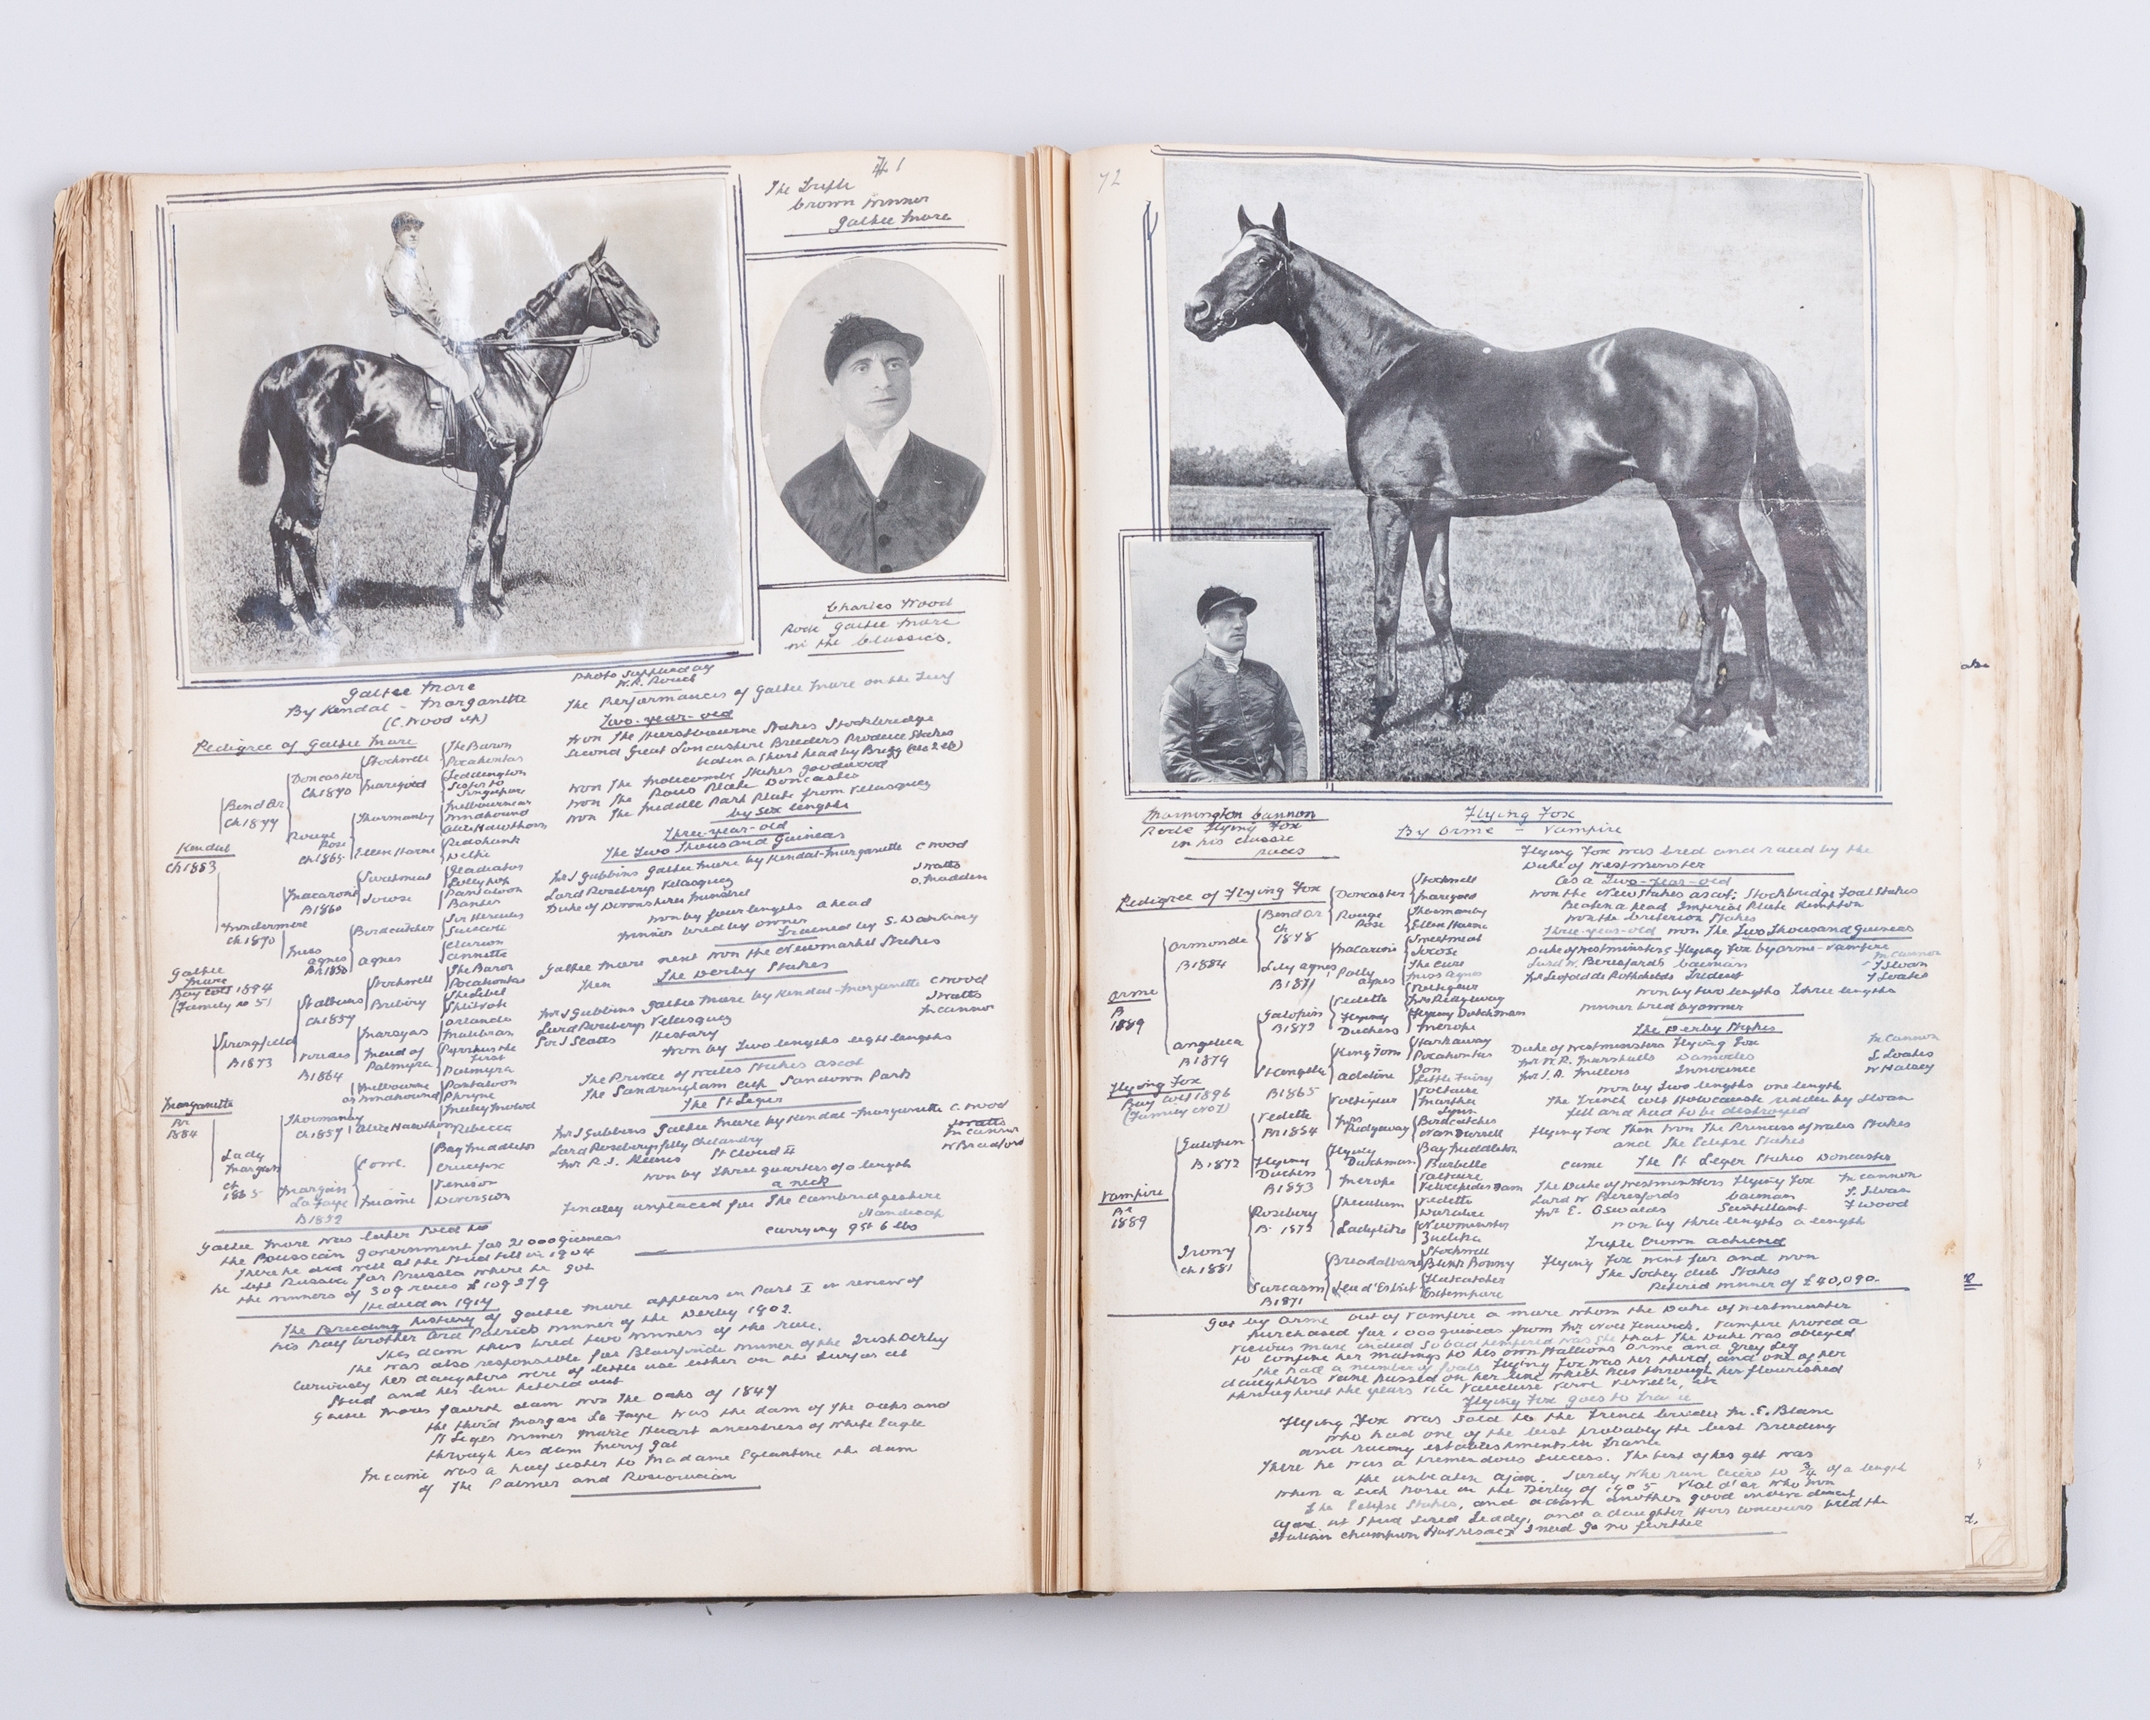 71
The Triple
Crown Winner
Galtee More
Charles Wood
Rode Galtee More
in the Classics.
Galtee More
By Kendal - Morganette
(C. Wood up)
Photo Supplied by
W.A. Rouch
Pedigree of Galtee More
Kendal
Ch 1883
Bend Or
Ch 1877
Doncaster
Ch 1870
Stockwell
The Baron
Pocahontas
Marigold
Teddington
Sister to
Singapore
Rouge
Rose
Ch 1865
Thormanby
Melbourne or
Windhound
Alice Hawthorn
Ellen Horne
Redshank
Delhi
Windermere
Ch 1870
Macaroni
B 1860
Sweetmeat
Gladiator
Lollypop
Jocose
Pantaloon
Banter
Miss
Agnes
Birdcatcher
Sir Hercules
Guiccioli
Agnes
Clarion
Annette
Galtee
More
Bay Colt 1894
(Family no 5)
Morganette
1884
Springfield
B 1873
St Albans
Ch 1857
Stockwell
The Baron
Pocahontas
Bribery
The Libel
Splitvote
Viridis
B 1864
Marsyas
Orlando
Malibran
Maid of
Palmyra
Pyrrhus the
First
Palmyra
Lady
Morgan
Ch
1865
Thormanby
Ch 1857
Melbourne
or Windhound
Pantaloon
Phryne
Alice Hawthorn
Muley Moloch
Rebecca
Morgan
La Faye
Cowl
Bay Middleton
Crucifix
Miami
Venison
Diversion
The Performances of Galtee More on the Turf
Two-year-old
Won The Hurstbourne Stakes Stockbridge
Second Great Lancashire Breeders Produce Stakes
beaten a short head by Brigg
Won The Molecombe Stakes Goodwood
Won The Rous Plate Doncaster
Won The Middle Park Plate from Velasquez
by six lengths
Three-year-old
The Two Thousand Guineas
Mr J Gubbins Galtee More by Kendal-Morganette C Wood
Lord Roseberys Velasquez J Watts
Duke of Devonshires Minstrel O. Madden
Won by four lengths a head
Winner bred by owner
Trained by S. Darling
Galtee More next won the Newmarket Stakes
Then The Derby Stakes
Mr J Gubbins Galtee More by Kendal-Morganette C Wood
Lord Roseberys Velasquez J Watts
History M Cannon
Won by Two lengths eight lengths
The Prince of Wales Stakes Ascot
The Sandringham Cup Sandown Park
The St Leger
Mr J Gubbins Galtee More by Kendal-Morganette C. Wood
Lord Roseberys filly Chelandry J Watts
St Cloud II
Won by Three quarters of a length
a neck
Finally unplaced for The Cambridgeshire
Handicap
carrying 9 st 6 lbs
Galtee More was later sold to
the Russian government for 21000 guineas
There he did well at the stud till in 1904
he left Russia for Prussia where he got
the winners of 309 races £109279
He died in 1917
The Breeding history of Galtee More appears in Part I in review of
his half brother Ard Patrick winner of the Derby 1902.
This dam thus bred two winners of the race.
She was also responsible for Blairfinde winner of the Irish Derby
Curiously her daughters were of little use either on the turf or at
Stud and her line petered out
Galtee Mores fourth dam won The Oaks of 1847
the third Morgan La Faye was the dam of The Oaks and
St Leger winner Marie Stuart ancestress of White Eagle
through his dam Merry Gal
Miami was a half sister to Madame Eglantine the dam
of The Palmer and Rosicrucian
72
Mornington Cannon
Rode Flying Fox
in his classic
races
Flying Fox
By Orme - Vampire
Pedigree of Flying Fox
Orme
B
1889
Ormonde
B 1884
Bend Or
Ch
Doncaster
Stockwell
Marigold
Rouge
Rose
Thormanby
Ellen Horne
Lily Agnes
B 1871
Macaroni
Sweetmeat
Jocose
Polly
Agnes
The Cure
Miss Agnes
Angelica
B 1879
Galopin
B 1872
Vedette
Voltigeur
Mrs Ridgway
Flying
Duchess
Flying Dutchman
Merope
St Angela
B 1865
King Tom
Harkaway
Pocahontas
Adeline
Ion
Little Fairy
Flying Fox
Bay Colt 1896
(Family no 7)
Vampire
Br
1889
Galopin
B 1872
Vedette
Br 1854
Voltigeur
Voltaire
Martha
Lynn
Mrs
Ridgway
Birdcatcher
Nan Darrell
Flying
Duchess
B 1853
Flying
Dutchman
Bay Middleton
Barbelle
Merope
Voltaire
Irony
Ch 1881
Rosebery
B 1872
Speculum
Vedette
Doralice
Ladylike
Newminster
Zuleika
Sarcasm
B 1871
Breadalbane
Stockwell
Blink Bonny
Jeu d'Esprit
Flatcatcher
Extempore
Flying Fox was bred and raced by the
Duke of Westminster
As a Two-year-old
won the New Stakes Ascot: Stockbridge Foal Stakes
Beaten a head Imperial Plate Kempton
won the Criterion Stakes
Three-year-old won The Two Thousand Guineas
Duke of Westminsters Flying Fox by Orme-Vampire M Cannon
Lord W. Beresfords Caiman T Sloan
Mr Leopold de Rothschilds Trident F Loates
won by two lengths three lengths
winner bred by owner
The Derby Stakes
Duke of Westminsters Flying Fox M Cannon
Mr W.R. Marshalls Damocles S Loates
Mr J.A. Millers Innocence W Halsey
won by Two lengths one length
The French colt Holocauste ridden by Sloan
fell and had to be destroyed
Flying Fox Then won The Princess of Wales Stakes
and The Eclipse Stakes
came The St Leger Stakes Doncaster
The Duke of Westminsters Flying Fox M Cannon
Lord W Beresfords Caiman T. Sloan
Mr E. Oswalds Scintillant F Wood
won by three lengths a length
Triple Crown achieved
Flying Fox went fur and won
The Jockey Club Stakes
Retired winner of £40,090-
Got by Orme out of Vampire a mare whom the Duke of Westminster
purchased for 1000 guineas from Mr Noel Fenwick. Vampire proved a
vicious mare indeed so bad tempered was she that The Duke was obliged
to confine her matings to his own stallions Orme and Grey Leg
She had a number of foals Flying Fox was her third and one of her
daughters Vane passed on her line which has through her flourished
throughout the years via Vaucluse
Flying Fox goes to France
Flying Fox was sold to the French breeder M. E. Blanc
who had one of the best probably the best Breeding
and racing establishments in France
There he was a tremendous success. The best of his get was
the unbeaten Ajax. Jardy who ran Cicero to ¾ of a length
when a sick horse in the Derby of 1905 Val d'or who won
The Eclipse Stakes, and Adam another good
Ajax at stud sired Teddy, and a daughter Hors Concours bred the
Italian champion Havresac I need go no further